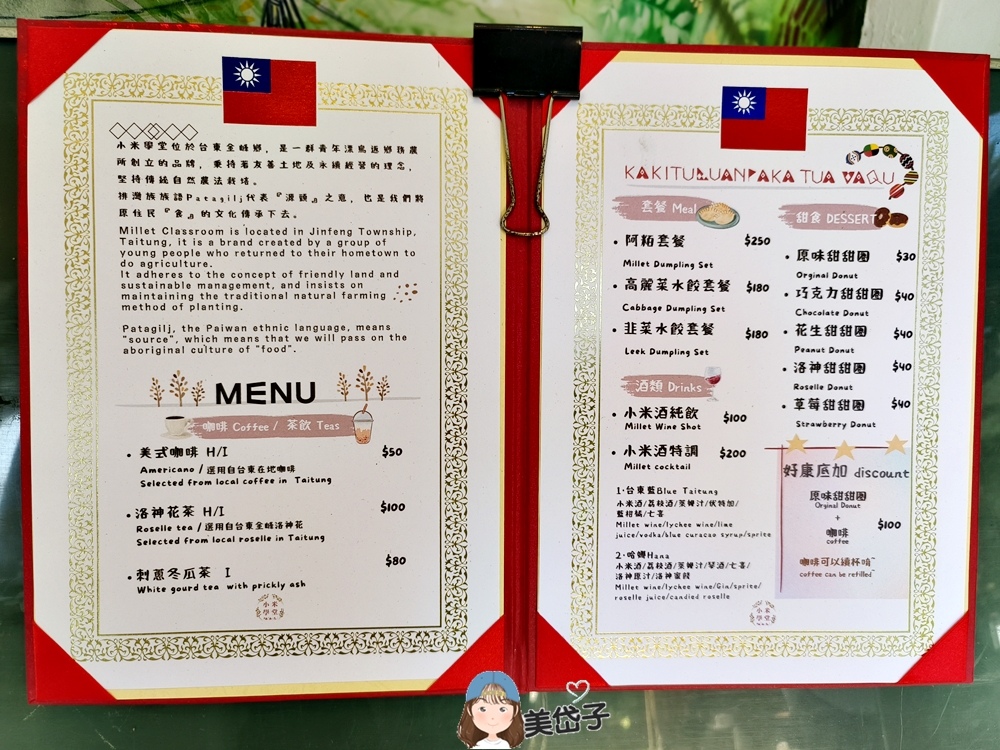 小米學堂位於台東金峰鄉，是一群青年漂鳥返鄉務農
所創立的品牌，秉持著友善土地及永續經營的理念，
堅持傳統自然農法栽培。
排灣族族語Patagilj代表『源頭』之意，也是我們將
原住民『食』的文化傳承下去。
Millet Classroom is located in Jinfeng Township,
Taitung, it is a brand created by a group of
young people who returned to their hometown to
do agriculture.
It adheres to the concept of friendly land and
sustainable management, and insists on
maintaining the traditional natural farming
method of planting.
Patagilj, the Paiwan ethnic language, means
"source", which means that we will pass on the
aboriginal culture of "food".
MENU
咖啡 Coffee / 茶飲 Teas
• 美式咖啡 H/I $50
Americano / 選用自台東在地咖啡
Selected from local coffee in Taitung
• 洛神花茶 H/I $100
Roselle tea / 選用自台東金峰洛神花
Selected from local roselle in Taitung
• 刺蔥冬瓜茶 I $80
White gourd tea with prickly ash
小米
學堂
KAKITULUANPAKA TUA VAQU
套餐 Meal
• 阿粨套餐 $250
Millet Dumpling Set
• 高麗菜水餃套餐 $180
Cabbage Dumpling Set
• 韭菜水餃套餐 $180
Leek Dumpling Set
酒類 Drinks
• 小米酒純飲 $100
Millet Wine Shot
• 小米酒特調 $200
Millet cocktail
1.台東藍Blue Taitung
小米酒/荔枝酒/萊姆汁/伏特加/
藍柑橘/七喜
Millet wine/lychee wine/lime
juice/vodka/blue curacao syrup/sprite
2.哈娜Hana
小米酒/荔枝酒/萊姆汁/琴酒/七喜/
洛神原汁/洛神蜜餞
Millet wine/lychee wine/Gin/sprite/
roselle juice/candied roselle
甜食 DESSERT
• 原味甜甜圈 $30
Orginal Donut
• 巧克力甜甜圈 $40
Chocolate Donut
• 花生甜甜圈 $40
Peanut Donut
• 洛神甜甜圈 $40
Roselle Donut
• 草莓甜甜圈 $40
Strawberry Donut
好康底加 discount
原味甜甜圈
Orginal Donut
+
咖啡 $100
coffee
咖啡可以續杯唷~
coffee can be refilled
小米
學堂
美岱子